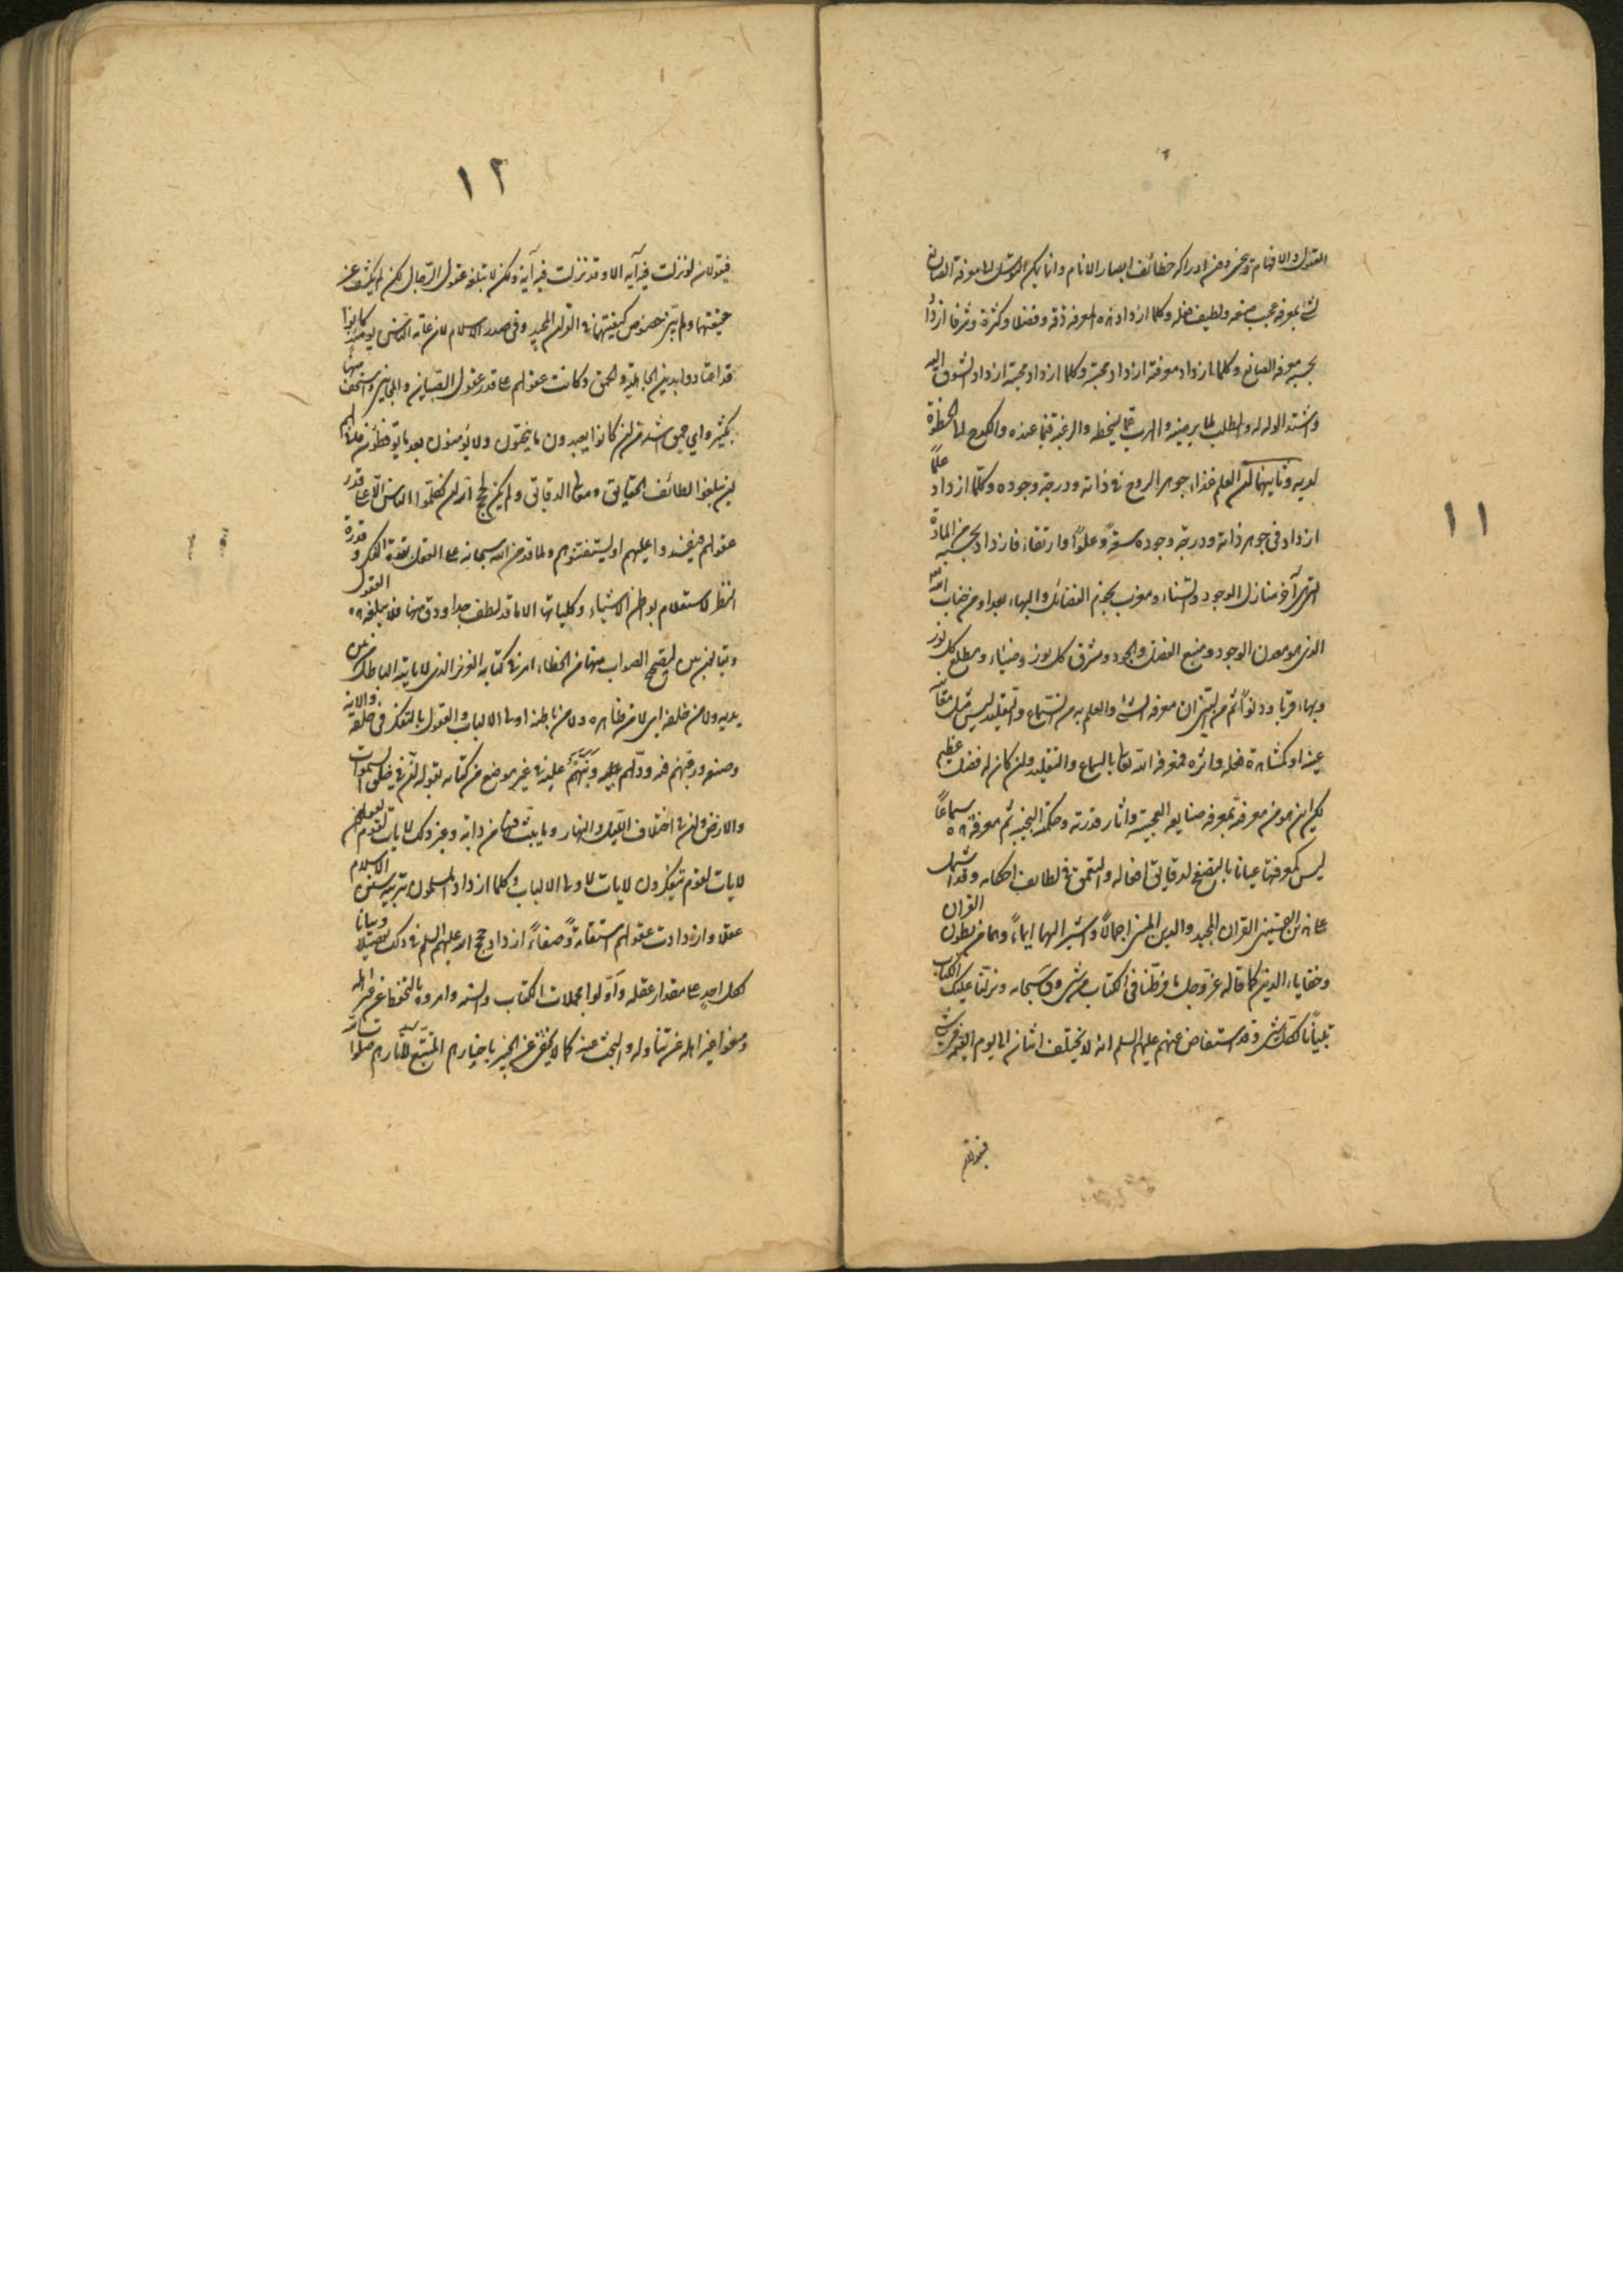 ١١
العقول والافهام وتحير دون ادراكه خطائف ابصار الانام وانما يمكن التوسل الى معرفة الصانع
بمعرفة عجيب صنعه ولطيف فعله وكلما ازداد هذه المعرفة دقة وفضلا وكثرة وشرفا ازداد
بحسبه معرفة الصانع وكلما ازداد معرفته ازداد محبته وكلما ازداد محبته ازداد الشوق اليه
واشتد الوله له والطلب لما يرضيه والهرب عما يسخطه والرغبة فيما عنده والكدح لما الحظوة
لديه وثانيهما ان العلم غذاء جوهر الروح في ذاته ودرجة وجوده وكلما ازداد علما
ازداد في جوهر ذاته ودرجة وجوده سعة وعلوا وارتقاء فازداد بحسبه من المادة
التي آخر منازل الوجود والسناء ومغرب نجوم الفضائل والبهاء بعدا ومن جناب الله
الذي هو معدن الوجود ومنبع الفضل والجود ومشرق كل نور وضياء ومطلع كل نور
وبهاء قربا ودنوا ثم من البين ان معرفة الشئ والعلم به من السماع والتقليد ليس مثل معاينة
عينه او كمشاهدة فعله واثره فمعرفة الله تعالى بالسماع والتقليد وان كان له فضل عظيم
لكن اين هو من معرفته بمعرفة صنايعه العجيبة واثار قدرته وحكمته ثم معرفة هذه سماعا
ليس كمعرفتها عيانا بالتصفح لدقايق افعاله والتعمق في لطائف احكامه وقد اشتمل
على هذين القران المجيد والدين المبين اجمالا واشير اليهما ايماء وهما من بطون القران
وخفاياء الدين كما قاله عز وجل ما فرطنا في الكتاب من شئ وقال سبحانه ونزلنا عليك الكتاب
تبيانا لكل شئ وقد استفاض عنهم عليهم السلم انه لا يختلف اثنان الى يوم القيمة في شئ
فيقولان
١٢
فيقولان لو نزلت فيه آية الا وقد نزلت فيه آية ولكن لا تبلغه عقول الرجال لكن لم يكشف عن
حقيقتهما ولم يبين خصوص كيفيتهما في القران المجيد وفي صدر الاسلام لان عامة الناس يومئذ كانوا
قد اعتادوا بدين الجاهلية والحمق وكانت عقولهم على قدر عقول الصبيان والمجانين واسخف منها
بكثير واي حمق اشد من ان كانوا يعبدون ما ينحتون ولا يؤمنون بعد ما يوقظون
لن يبلغوا لطائف الحقايق ومعالي الدقايق ولم يكن لحجج الله ان يكلموا الناس الا على قدر
عقولهم فيفسدوا عليهم او يستفتنوهم ولما قد من الله سبحانه على العقول بقوة الفكر وقدرة
النظر لاستعلام بواطن الاشياء وكلياتها الا ما قد لطف جدا ودق منها فلا يبلغه العقول
ليتضح الصواب منها من الخطاء امر في كتابه العزيز الذي لا ياتيه الباطل من بين
يديه ولا من خلفه اي لا من ظاهره ولا من باطنه اولي الالباب والعقول بالتفكر في خلقه والائه
وصنعه ورغبهم فيه ودلهم عليه ونبههم عليه في غير موضع من كتابه بقوله ان في خلق السموات
والارض وان في اختلاف الليل والنهار وما يبث فيهما من دابة وغير ذلك لايات لقوم يعقلون
لايات لقوم يتفكرون لايات لاولي الالباب وكلما ازداد المسلمون بتربية سنن الاسلام
عقلا وازدادت عقولهم استقامة وصفاء ازداد حجج الله عليهم السلم في ذلك تفصيلا وبيانا
لكل احد على مقدار عقله واولوا مجملات الكتاب والسنة وامروه بالتحفظ عن غير اهله
ومنعوا غير اهله عن تناوله والبحث عنه كما لا يخفى على الخبير باخبارهم المتتبع لاثارهم صلوات الله